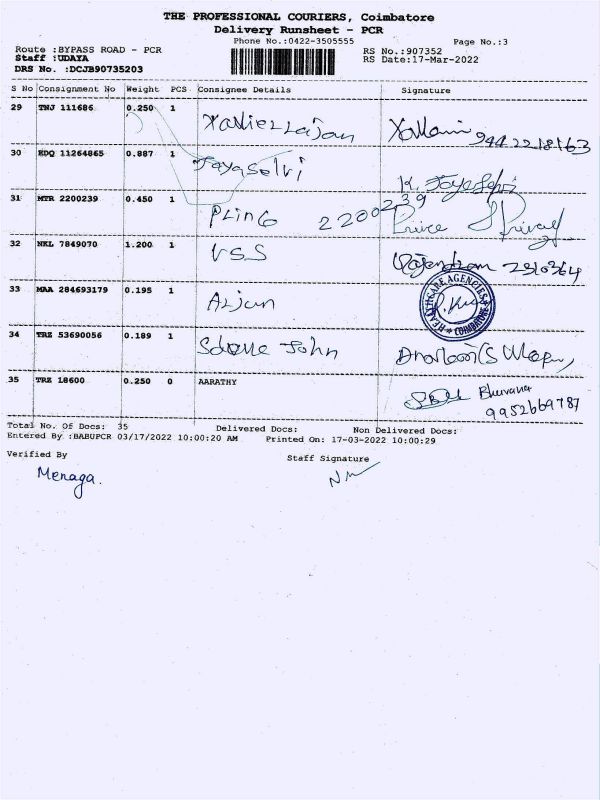 THE PROFESSIONAL COURIERS, Coimbatore
Delivery Runsheet - PCR
Phone No.:0422-3505555
Page No.:3
Route :BYPASS ROAD - PCR
RS No.:907352
Staff :UDAYA
RS Date:17-Mar-2022
DRS No. :DCJB90735203
S No Consignment No Weight PCS Consignee Details Signature
29 TNJ 111686 0.250 1
30 EDQ 11264865 0.887 1 Jayaselvi K. Jayaselvi
31 MTR 2200239 0.450 1 2200239
32 NKL 7849070 1.200 1 VSS
33 MAA 284693179 0.195 1 Arjun HEALTHCARE AGENCIES COIMBATORE
34 TRZ 53690056 0.189 1 John
35 TRZ 18600 0.250 0 AARATHY Bhuvana
9952669787
Total No. Of Docs: 35 Delivered Docs: Non Delivered Docs:
Entered By :BABUPCR 03/17/2022 10:00:20 AM Printed On: 17-03-2022 10:00:29
Verified By Staff Signature
Menaga.